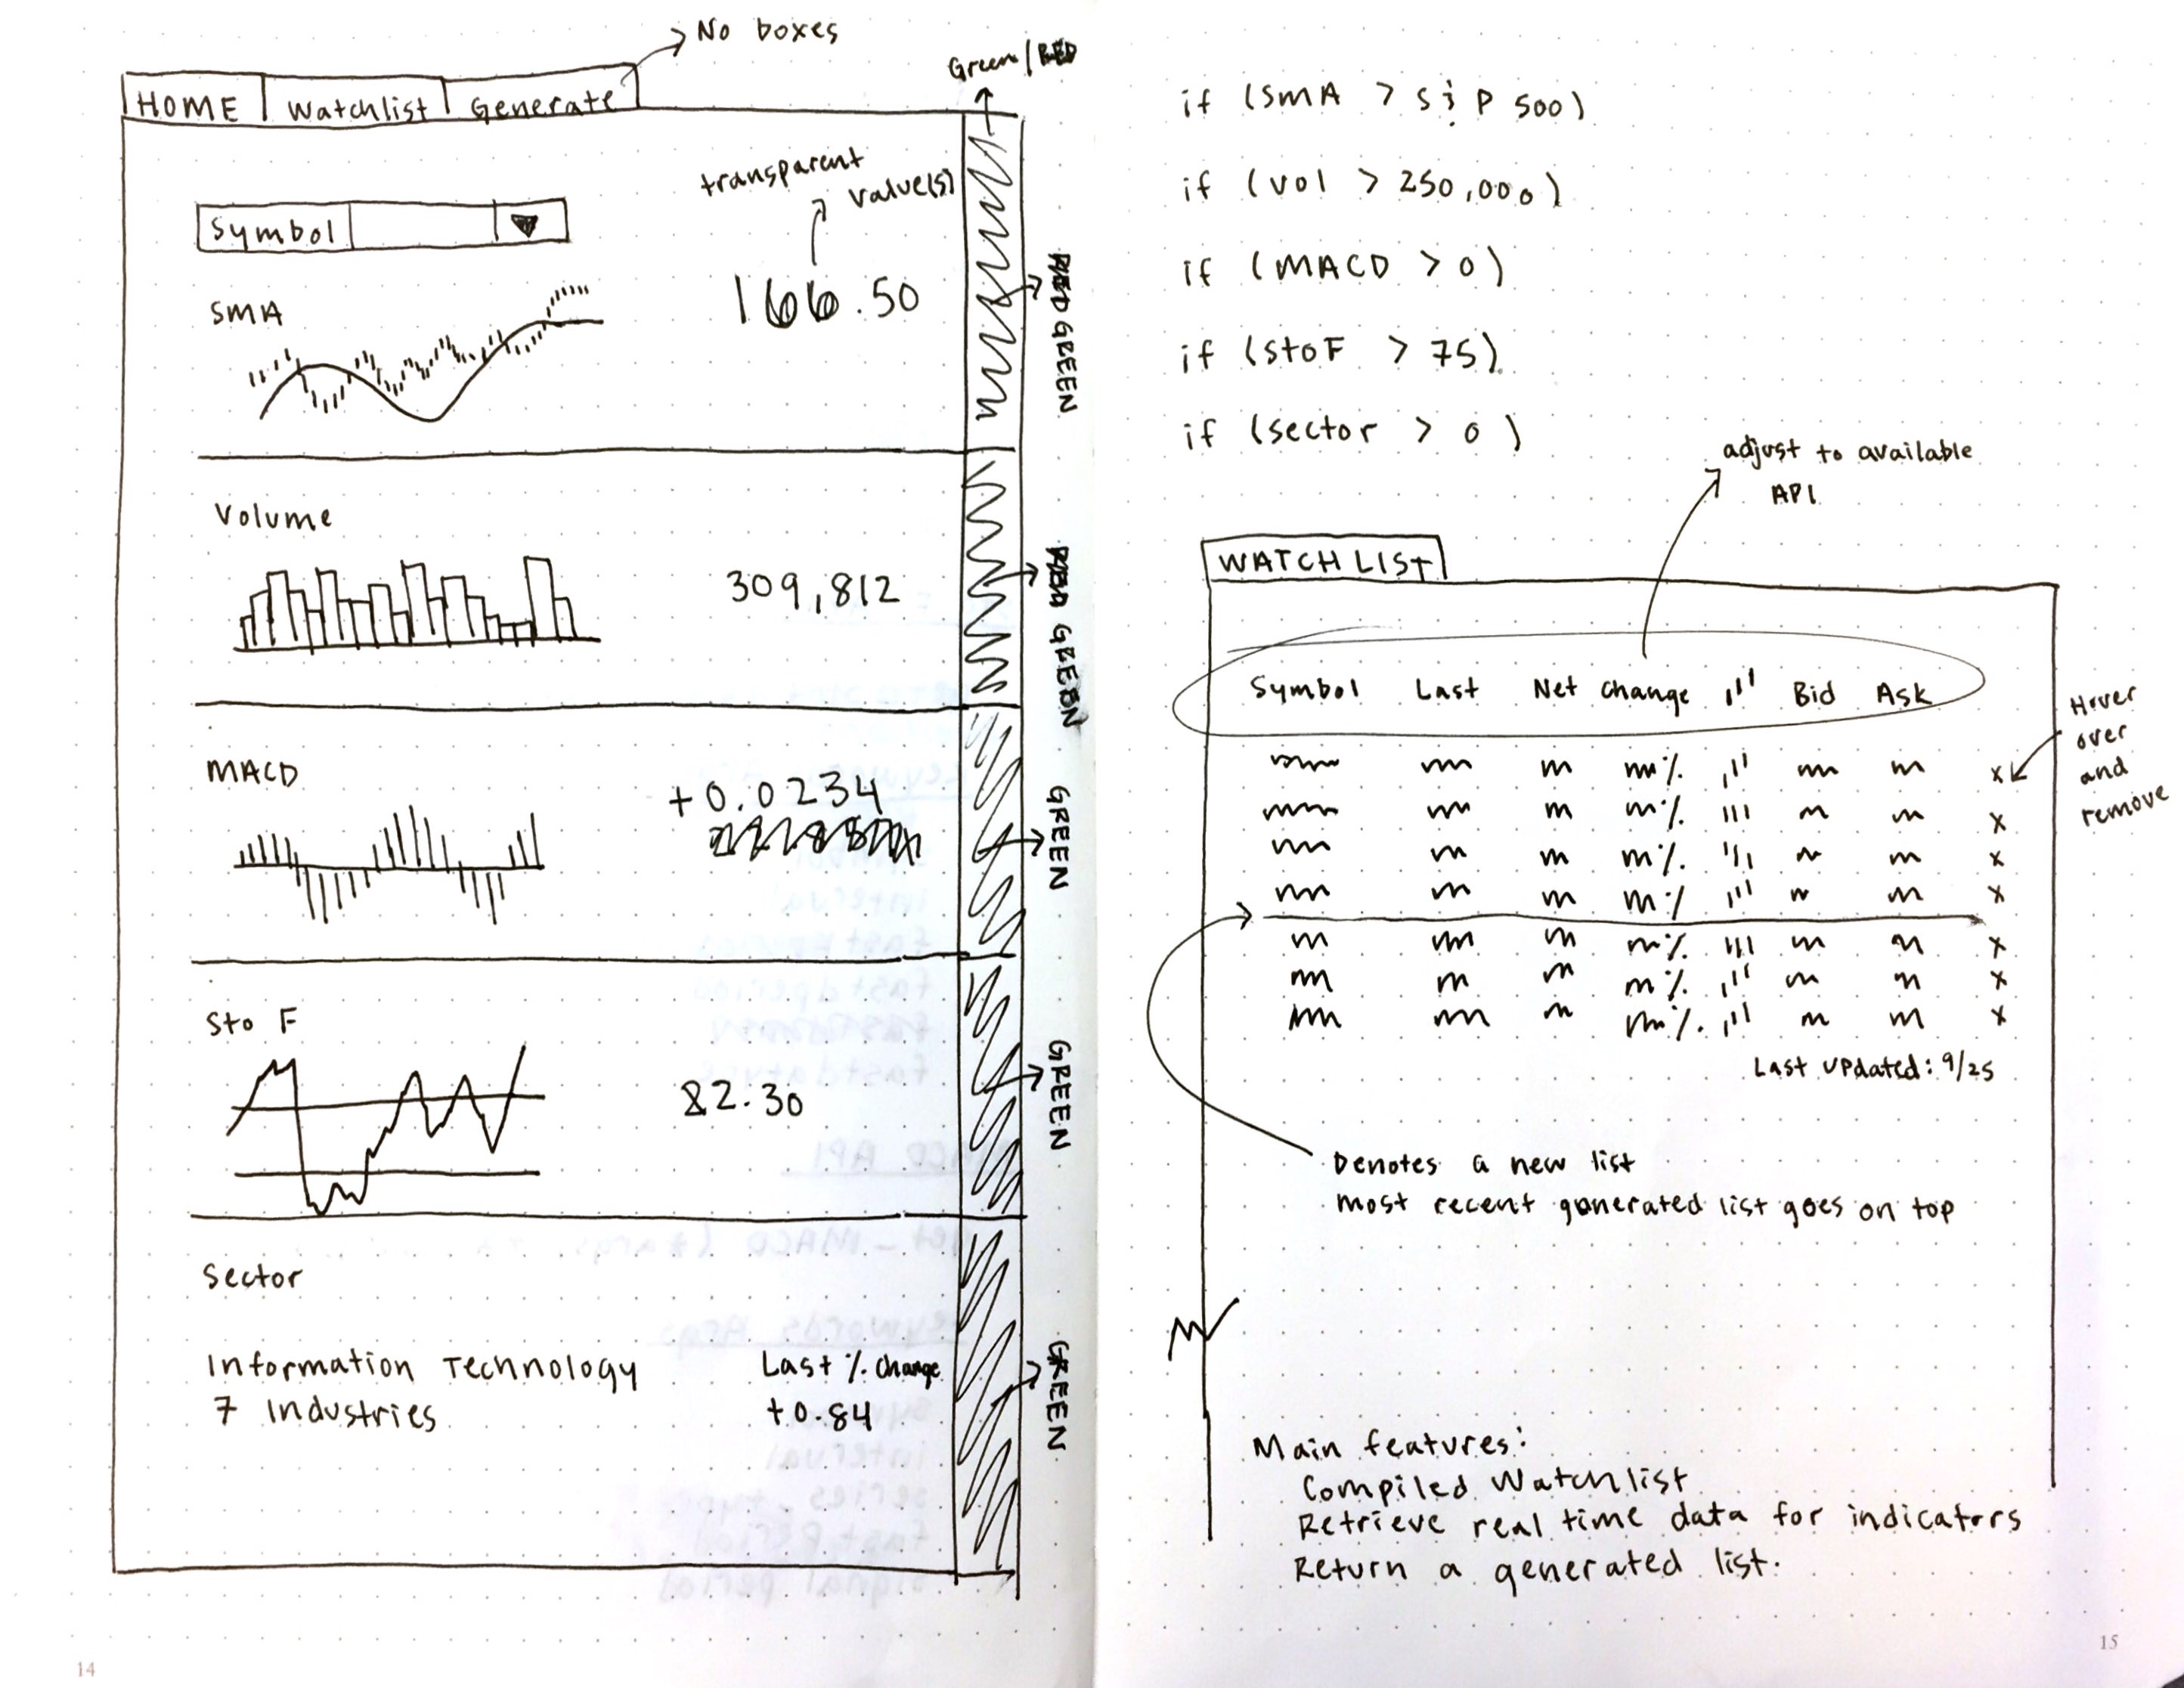 No boxes
Green/RED
HOME Watchlist Generate
transparent value(s)
Symbol
SMA
166.50
GREEN
Volume
309,812
GREEN
MACD
+0.0234
GREEN
Sto F
82.30
GREEN
Sector
Information Technology
7 Industries
Last % change
+0.84
GREEN
14
if (SMA > S & P 500)
if (vol > 250,000)
if (MACD > 0)
if (StoF > 75)
if (sector > 0)
adjust to available
API
WATCHLIST
Symbol Last Net Change Bid Ask
Hover
over
and
remove
Last updated: 9/25
Denotes a new list
most recent generated list goes on top
Main features:
Compiled Watchlist
Retrieve real time data for indicators
Return a generated list.
15